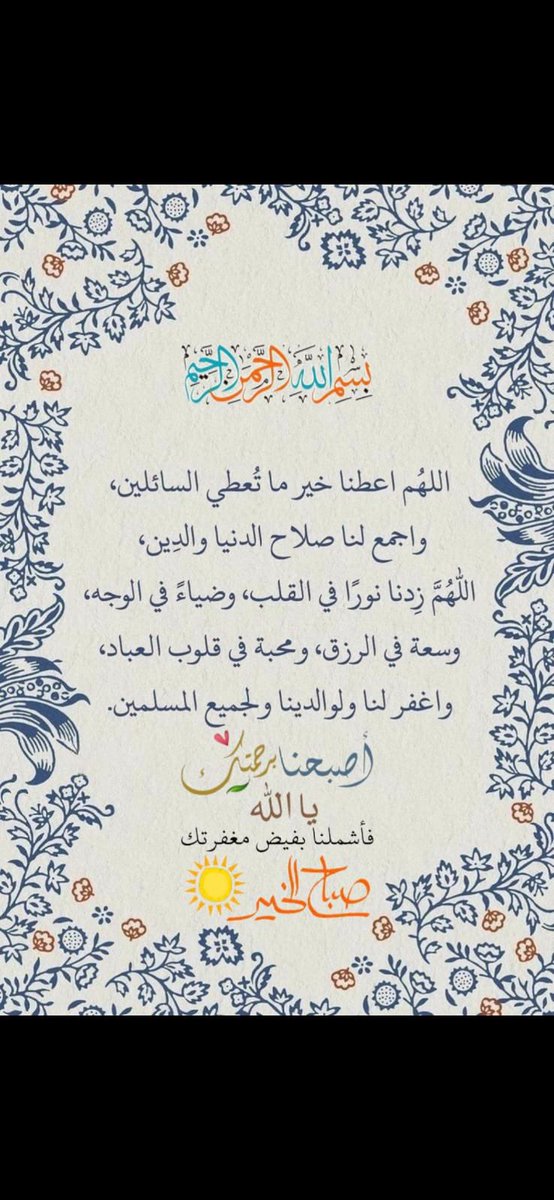 بِسْمِ اللَّهِ الرَّحْمَنِ الرَّحِيمِ
اللهُم اعطنا خير ما تُعطي السائلين،
واجمع لنا صلاح الدنيا والدِين،
اللَّهُمَّ زِدنا نورًا في القلب، وضياءً في الوجه،
وسعة في الرزق، ومحبة في قلوب العباد،
واغفر لنا ولوالدينا ولجميع المسلمين.
أصبحنا برحمتك
يا الله
فأشملنا بفيض مغفرتك
صباح الخير